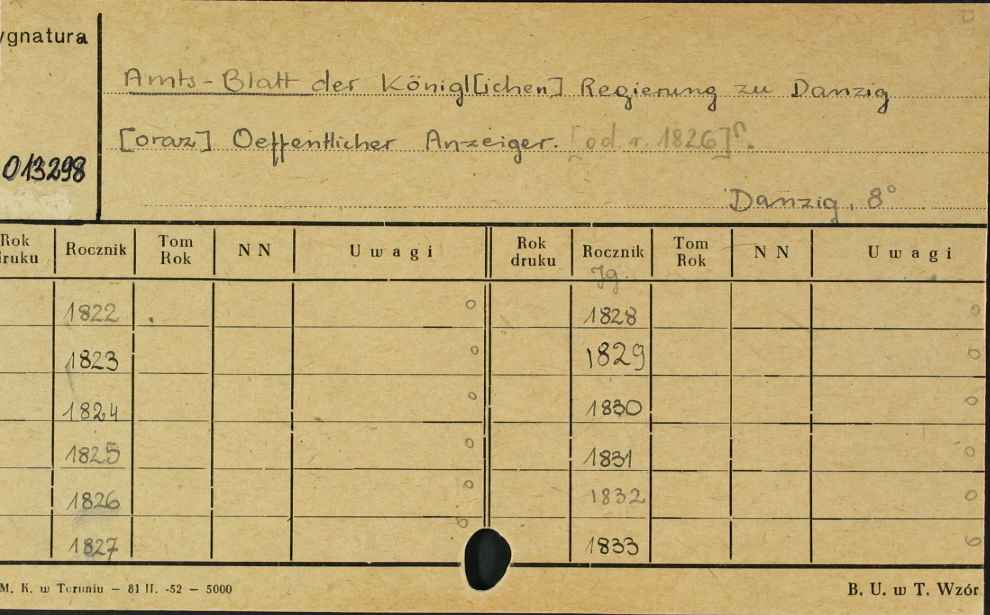 ygnatura
Amts-Blatt der Königl[ichen] Regierung zu Danzig
[oraz] Oeffentlicher Anzeiger. [od r. 1826]
013298
Danzig, 8°
Rok druku Rocznik Tom Rok NN Uwagi Rok druku Rocznik Tom Rok NN Uwagi
Jg.
1822 1828
1823 1829
1824 1830
1825 1831
1826 1832
1827 1833
M. K. w Toruniu – 81 II. -52 – 5000 B. U. w T. Wzór